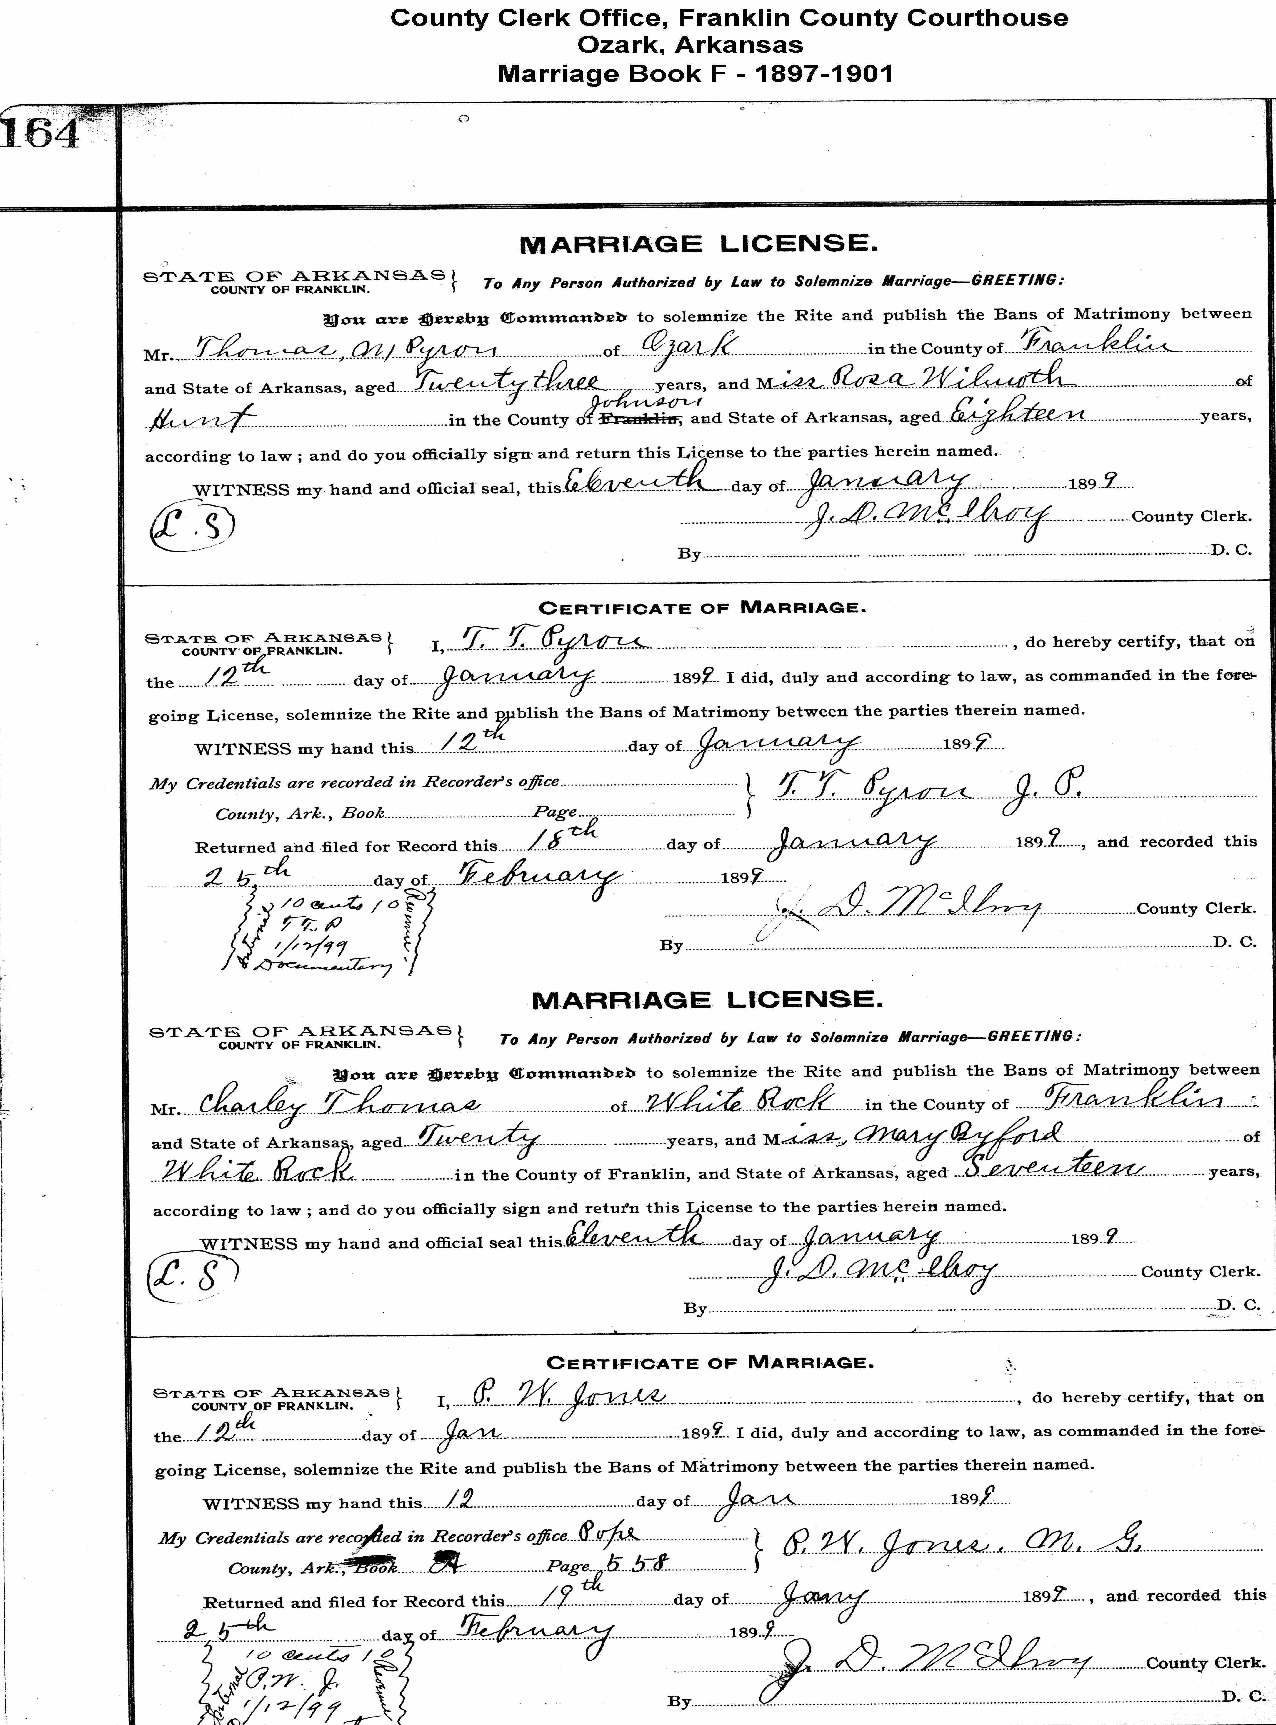 County Clerk Office, Franklin County Courthouse
Ozark, Arkansas
Marriage Book F - 1897-1901
164
MARRIAGE LICENSE.
STATE OF ARKANSAS
COUNTY OF FRANKLIN.
To Any Person Authorized by Law to Solemnize Marriage—GREETING:
You are Hereby Commanded to solemnize the Rite and publish the Bans of Matrimony between
Mr. Thomas, M Pyron of Ozark in the County of Franklin
and State of Arkansas, aged Twenty three years, and Miss Rosa Wilmoth of
Johnson
Hunt in the County of Franklin, and State of Arkansas, aged Eighteen years,
according to law; and do you officially sign and return this License to the parties herein named.
WITNESS my hand and official seal, this Eleventh day of January 1899
(L.S) J. D. McElroy County Clerk.
By D. C.
CERTIFICATE OF MARRIAGE.
STATE OF ARKANSAS
COUNTY OF FRANKLIN.
I, T. T. Pyron, do hereby certify, that on
the 12th day of January 1899 I did, duly and according to law, as commanded in the fore-
going License, solemnize the Rite and publish the Bans of Matrimony between the parties therein named.
WITNESS my hand this 12th day of January 1899
My Credentials are recorded in Recorder's office
T. T. Pyron J. P.
County, Ark., Book Page
Returned and filed for Record this 18th day of January 1899, and recorded this
25th day of February 1899
J. D. McElroy County Clerk.
10 cents 10
T. T. P
1/12/99
Documentary
By D. C.
MARRIAGE LICENSE.
STATE OF ARKANSAS
COUNTY OF FRANKLIN.
To Any Person Authorized by Law to Solemnize Marriage—GREETING:
You are Hereby Commanded to solemnize the Rite and publish the Bans of Matrimony between
Mr. Charley Thomas of White Rock in the County of Franklin
and State of Arkansas, aged Twenty years, and Miss, Mary Byford of
White Rock in the County of Franklin, and State of Arkansas, aged Seventeen years,
according to law; and do you officially sign and return this License to the parties herein named.
WITNESS my hand and official seal this Eleventh day of January 1899
(L.S) J. D. McElroy County Clerk.
By D. C.
CERTIFICATE OF MARRIAGE.
STATE OF ARKANSAS
COUNTY OF FRANKLIN.
I, P. W. Jones, do hereby certify, that on
the 12th day of Jan 1899 I did, duly and according to law, as commanded in the fore-
going License, solemnize the Rite and publish the Bans of Matrimony between the parties therein named.
WITNESS my hand this 12 day of Jan 1899
My Credentials are recorded in Recorder's office Pope
P. W. Jones. M. G.
County, Ark., Book A Page 558
Returned and filed for Record this 19th day of Jany 1899, and recorded this
25th day of February 1899
J. D. McElroy County Clerk.
10 cents 10
P. W. J.
1/12/99
By D. C.